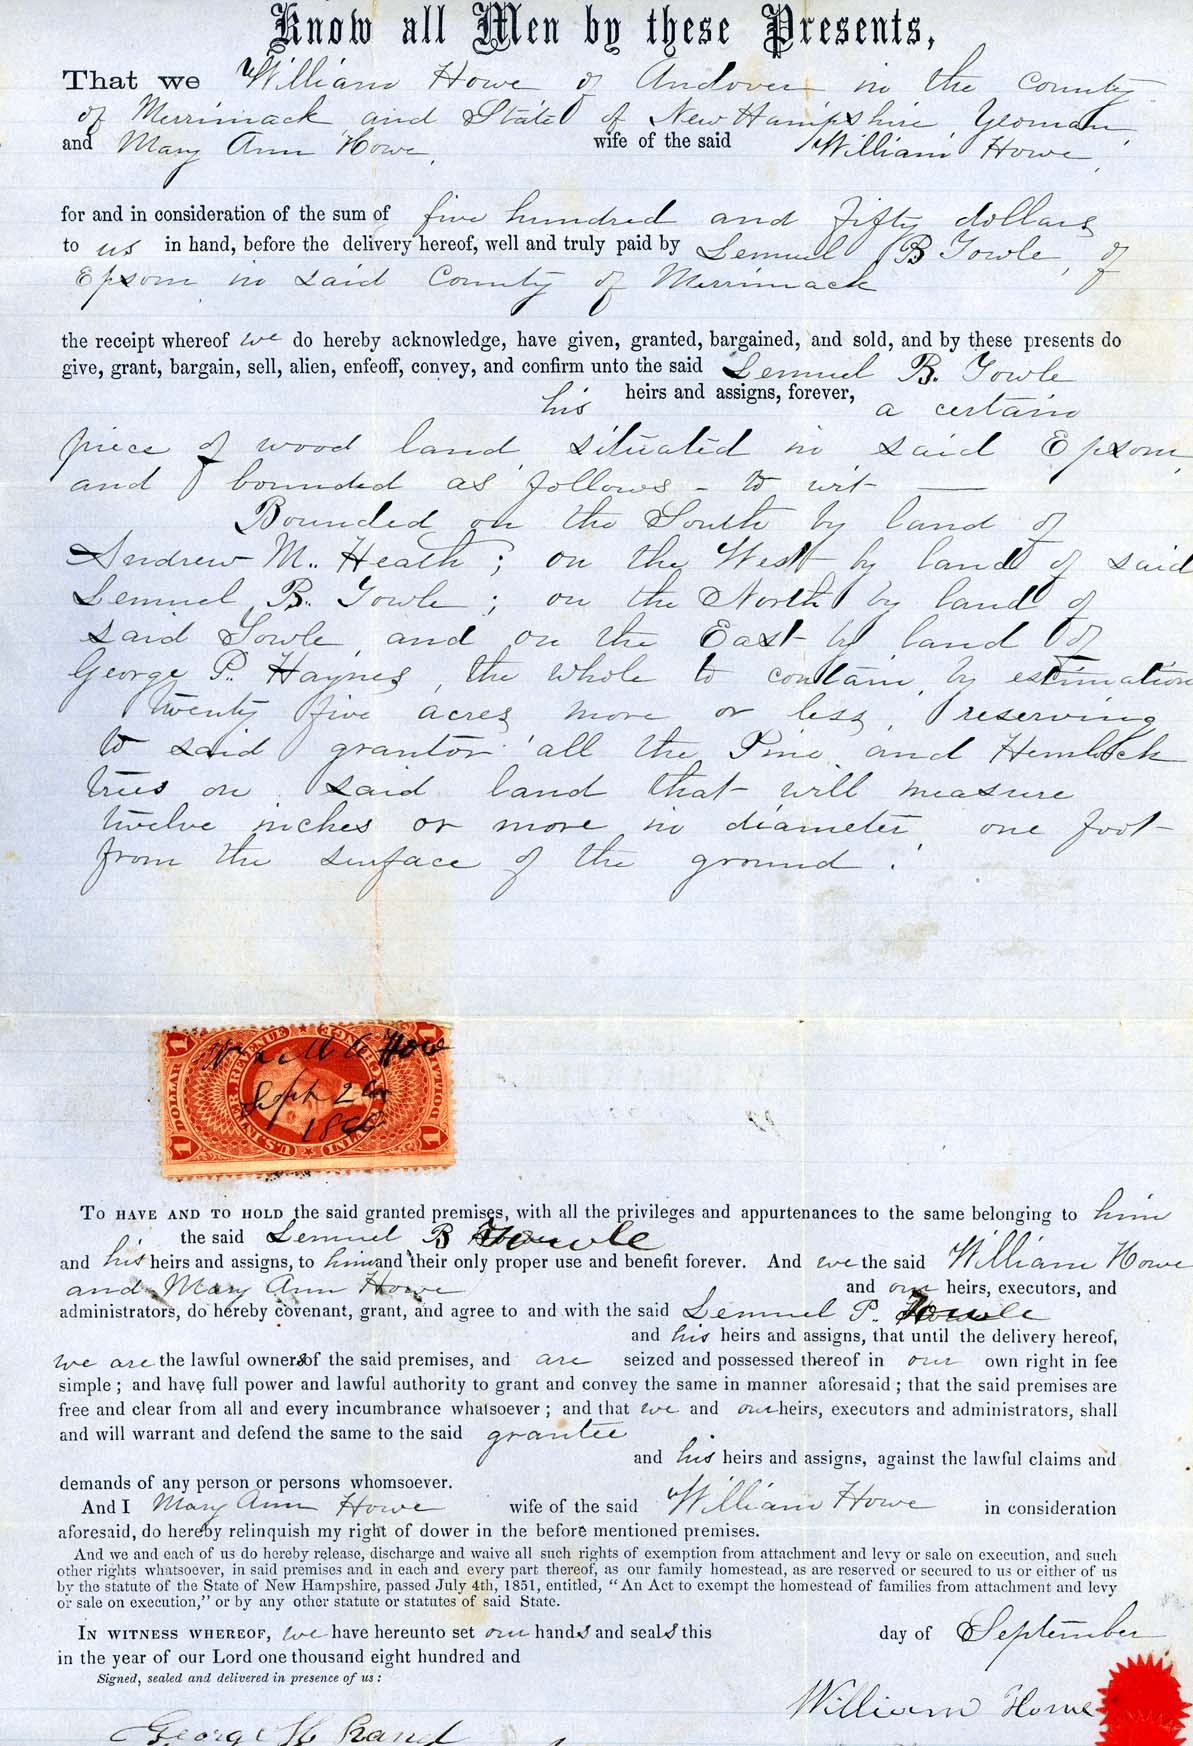 Know all Men by these Presents,
That we William Howe of Andover in the County
of Merrimack and State of New Hampshire, Yeoman,
and Mary Ann Howe, wife of the said William Howe,
for and in consideration of the sum of five hundred and fifty dollars
to us in hand, before the delivery hereof, well and truly paid by Lemuel B Towle, of
Epsom in said County of Merrimack
the receipt whereof we do hereby acknowledge, have given, granted, bargained, and sold, and by these presents do
give, grant, bargain, sell, alien, enfeoff, convey, and confirm unto the said Lemuel B. Towle
his heirs and assigns, forever, a certain
piece of wood land situated in said Epsom,
and bounded as follows - to wit —
Bounded on the South by land of
Andrew M. Heath; on the West by land of said
Lemuel B. Towle; on the North by land of
said Towle, and on the East by land of
George P. Haynes, the whole to contain, by estimation
twenty five acres more or less, reserving
to said grantor all the Pine and Hemlock
trees on said land that will measure
twelve inches or more in diameter one foot
from the surface of the ground.
1 DOLLAR 1
U.S. INTER. REVENUE
DOLLAR
Howe
Sept 26
1866
TO HAVE AND TO HOLD the said granted premises, with all the privileges and appurtenances to the same belonging to him
the said Lemuel B Towle
and his heirs and assigns, to him and their only proper use and benefit forever. And we the said William Howe
and Mary Ann Howe and our heirs, executors, and
administrators, do hereby covenant, grant, and agree to and with the said Lemuel P. Towle
and his heirs and assigns, that until the delivery hereof,
we are the lawful owners of the said premises, and are seized and possessed thereof in our own right in fee
simple; and have full power and lawful authority to grant and convey the same in manner aforesaid; that the said premises are
free and clear from all and every incumbrance whatsoever; and that we and our heirs, executors and administrators, shall
and will warrant and defend the same to the said grantee
and his heirs and assigns, against the lawful claims and
demands of any person or persons whomsoever.
And I Mary Ann Howe wife of the said William Howe in consideration
aforesaid, do hereby relinquish my right of dower in the before mentioned premises.
And we and each of us do hereby release, discharge and waive all such rights of exemption from attachment and levy or sale on execution, and such
other rights whatsoever, in said premises and in each and every part thereof, as our family homestead, as are reserved or secured to us or either of us
by the statute of the State of New Hampshire, passed July 4th, 1851, entitled, "An Act to exempt the homestead of families from attachment and levy
or sale on execution," or by any other statute or statutes of said State.
IN WITNESS WHEREOF, we have hereunto set our hands and seals this day of September
in the year of our Lord one thousand eight hundred and
Signed, sealed and delivered in presence of us:
William Howe
George H Rand